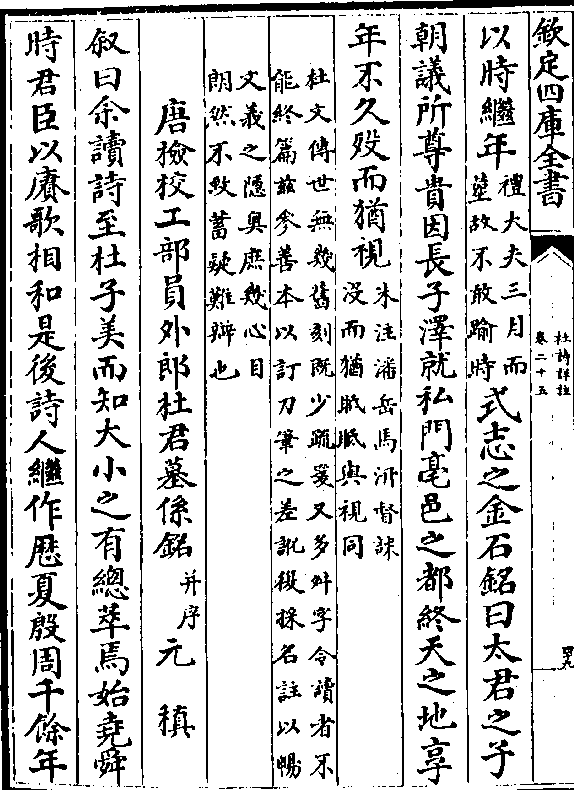 欽定四庫全書
杜詩詳註
卷二十五
以時繼年禮大夫三月而
塟故不敢踰時式志之金石銘曰太君之子
朝議所尊貴因長子澤就私門亳邑之都終天之地享
年不久殁而猶視朱注潘岳馬汧督誄
没而猶眡眡與視同
杜文傳世無幾舊刻既少疏箋又多舛字令讀者不
能終篇兹參善本以訂刀筆之差訛復採名註以暢
文義之隱奥庶幾心目
朗然不致蓄疑難辯也
唐檢校工部員外郎杜君墓係銘并序元稹
叙曰余讀詩至杜子美而知大小之有總萃焉始堯舜
時君臣以賡歌相和是後詩人繼作歷夏殷周千餘年